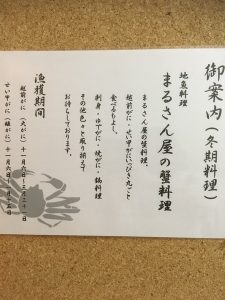 御案内（冬期料理）
地魚料理
まるさん屋の蟹料理
まるさん屋の蟹料理、
越前がに・せい甲がにいっぴき丸ごと
食べるもよし、
刺身・ゆでがに・焼がに・鍋料理
その他色々と取り揃えて
お待ちしております。
漁獲期間
越前がに（大がに）十一月六日～三月二十日
せい甲がに（雌がに）十一月六日～